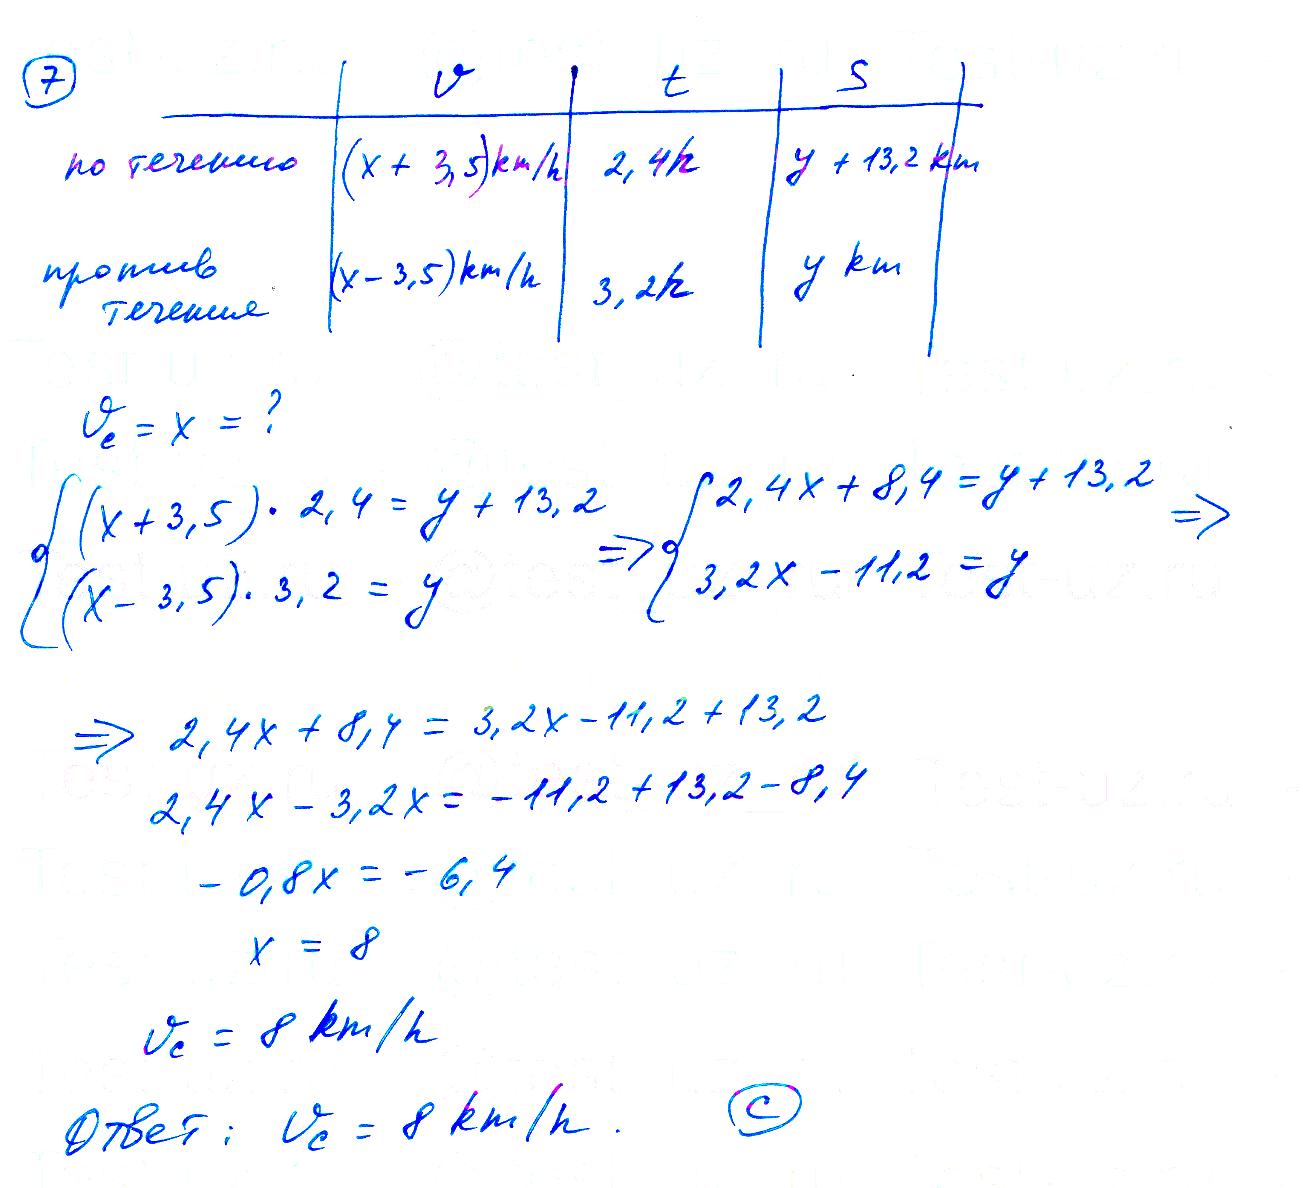 7
v t S
по течению (x + 3,5) km/h 2,4h y + 13,2 km
против
течения (x - 3,5) km/h 3,2h y km
Vc = x = ?
(x + 3,5) · 2,4 = y + 13,2 => 2,4x + 8,4 = y + 13,2 =>
(x - 3,5) · 3,2 = y 3,2x - 11,2 = y
=> 2,4x + 8,4 = 3,2x - 11,2 + 13,2
2,4x - 3,2x = -11,2 + 13,2 - 8,4
- 0,8x = - 6,4
x = 8
Vc = 8 km/h
Ответ: Vc = 8 km/h. C